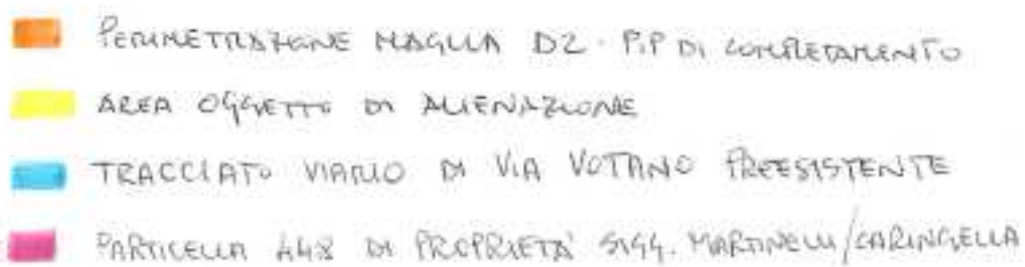 PERIMETRAZIONE MAGLIA D2 - P.I.P DI COMPLETAMENTO
AREA OGGETTO DI ALIENAZIONE
TRACCIATO VIARIO DI VIA VOTANO PREESISTENTE
PARTICELLA 448 DI PROPRIETA' SIGG. MARTINELLI/CARINGELLA